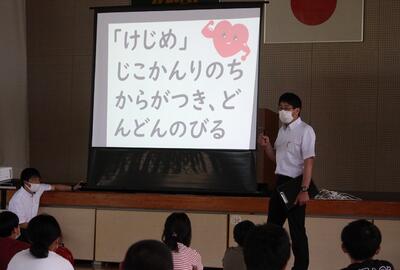 「けじめ」
じこかんりのち
からがつき、ど
んどんのびる